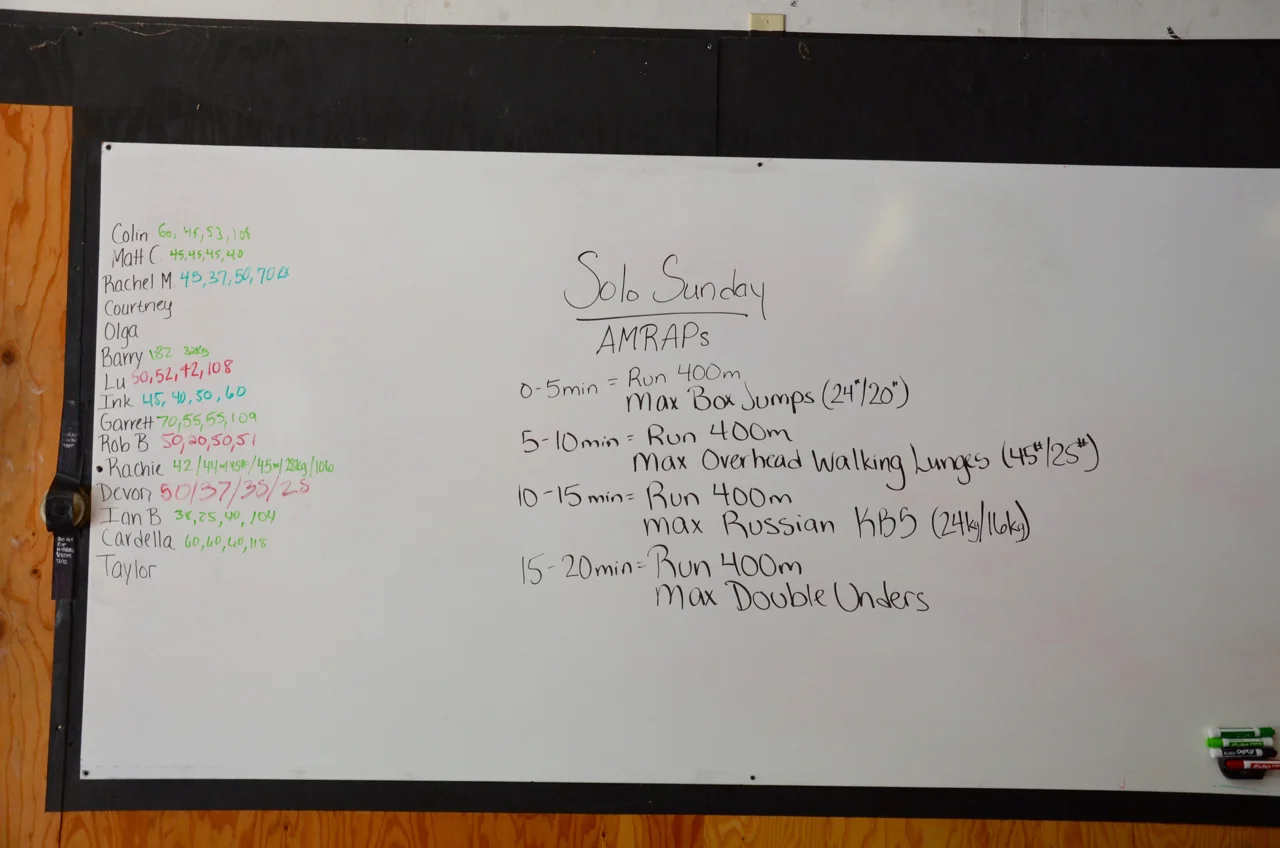 Colin 60, 45, 53, 108
Matt C. 45, 45, 45, 40
Rachel M. 45, 37, 50, 70
Courtney
Olga
Barry 182 32kg
Lu 50, 52, 42, 108
Ink 45, 40, 50, 60
Garrett 70, 55, 55, 109
Rob B 50, 20, 50, 51
• Rachie 42/44 /45#/45 /28kg/106
Devon 50/37/35/25
Ian B 38, 25, 40, 104
Cardella 60, 60, 60, 118
Taylor
Solo Sunday
AMRAPs
0-5min = Run 400m
Max Box Jumps (24"/20")
5-10min = Run 400m
Max Overhead Walking Lunges (45#/25#)
10-15min = Run 400m
Max Russian KBS (24kg/16kg)
15-20min = Run 400m
Max Double Unders